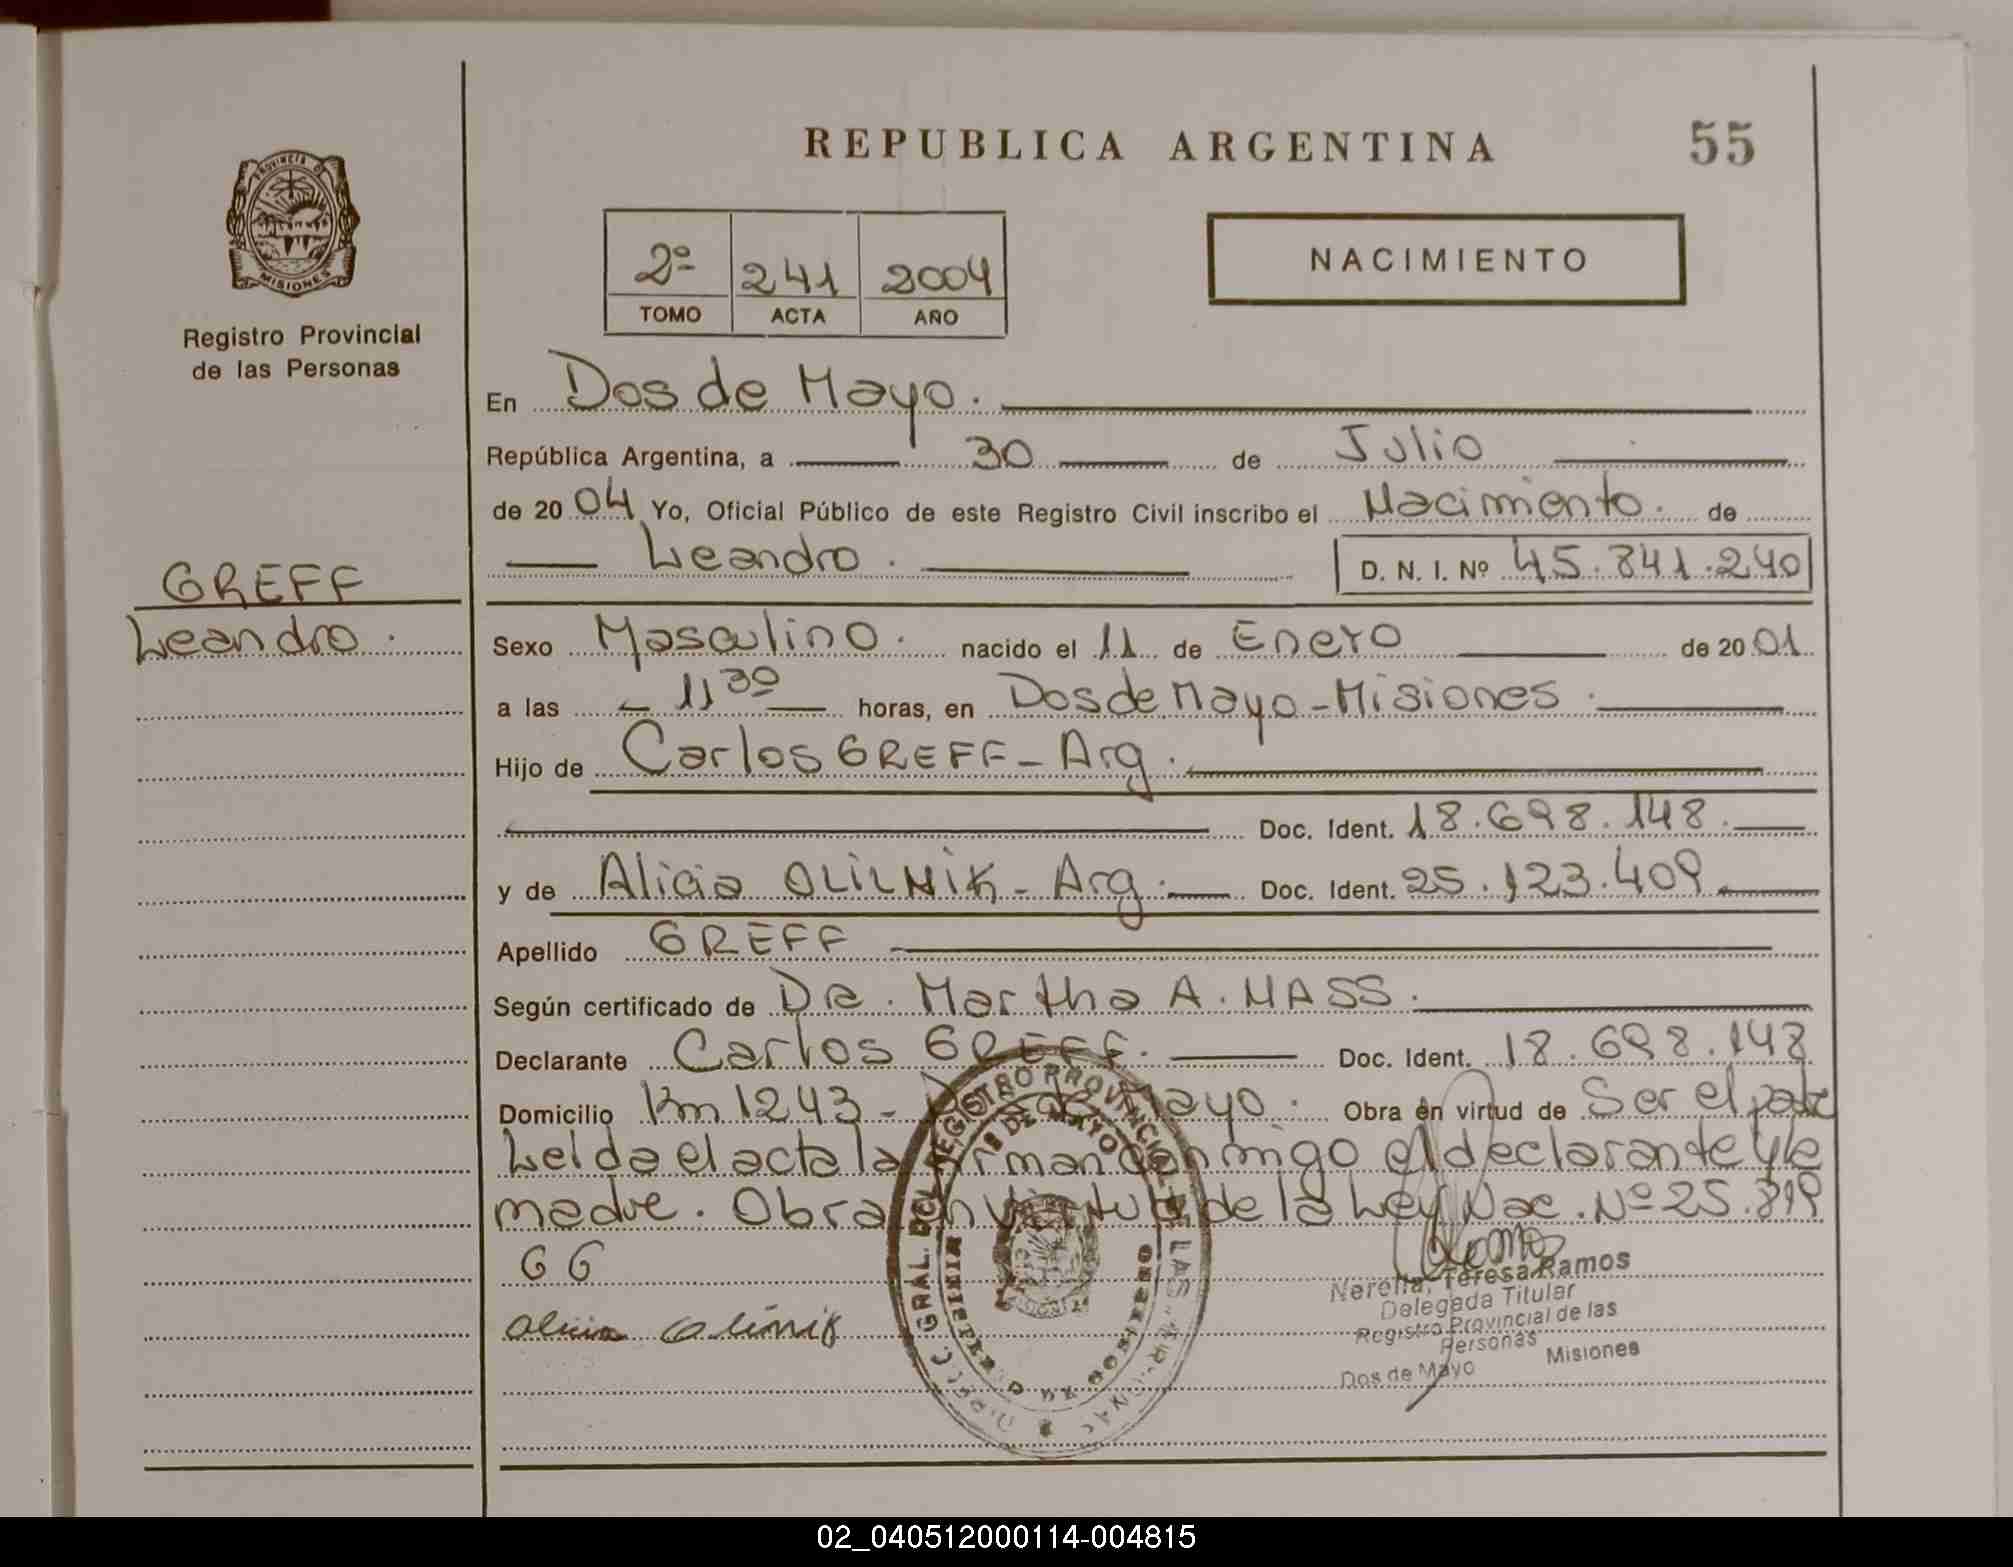 REPUBLICA ARGENTINA
55
PROVINCIA D
MISIONES
Registro Provincial
de las Personas
2º 241 2004
TOMO ACTA AÑO
NACIMIENTO
En Dos de Mayo.
República Argentina, a 30 de Julio
de 2004 Yo, Oficial Público de este Registro Civil inscribo el Nacimiento. de
Leandro. D. N. I. Nº 45.841.240
GREFF
Leandro.
Sexo Masculino. nacido el 11 de Enero de 2001
a las 11 30 horas, en Dos de Mayo - Misiones.
Hijo de Carlos GREFF - Arg.
Doc. Ident. 18.698.148.
y de Alicia OLILNIK - Arg. Doc. Ident. 25.123.409
Apellido GREFF
Según certificado de Dra. Martha A. MASS.
Declarante Carlos GREFF. Doc. Ident. 18.698.148
Domicilio Km 1243 - Dos de Mayo. Obra en virtud de Ser el padre
Leida el acta la firman conmigo el declarante y la
madre. Obra en virtud de la Ley Nac. Nº 25.819
G G
Alicia Olinik
Ramos
Teresa Ramos
Delegada Titular
Registro Provincial de las
Personas
Dos de Mayo Misiones
REGISTRO PROVINCIAL
DE MAYO
02_040512000114-004815